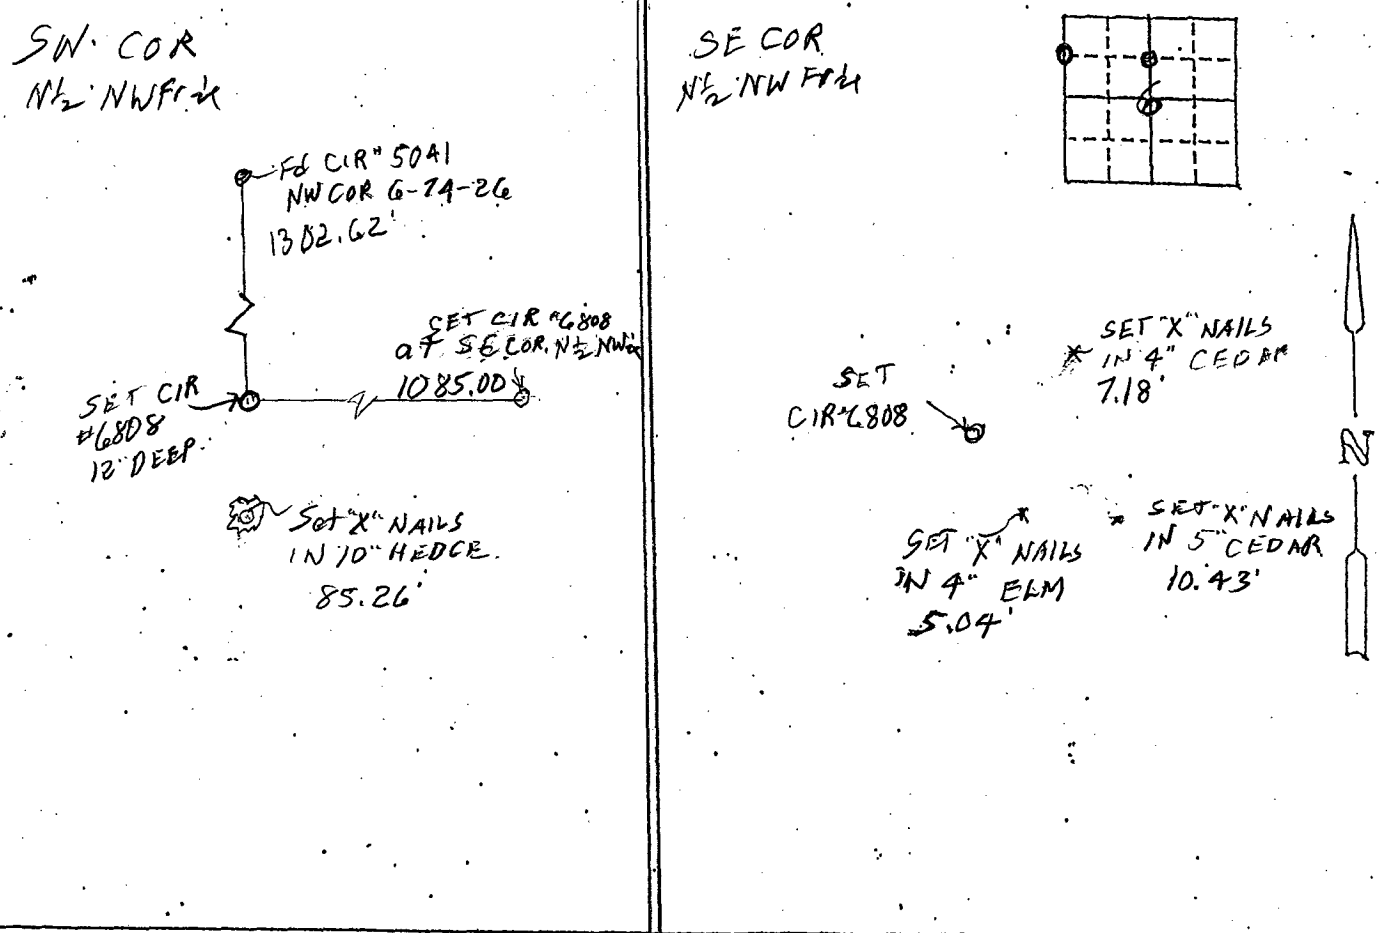 SW. COR
N½ NW Fr ¼
Fd CIR# 5041
NW COR 6-74-26
1302.62'
SET CIR #6808
at SE COR. N½ NW¼
1085.00'
SET CIR
#6808
12" DEEP.
Set "X" NAILS
IN 10" HEDGE.
85.26'
SE COR
N½ NW Fr ¼
6
SET "X" NAILS
IN 4" CEDAR
7.18'
SET
CIR#6808
SET "X" NAILS
IN 4" ELM
5.04'
SET "X" NAILS
IN 5" CEDAR
10.43'
N